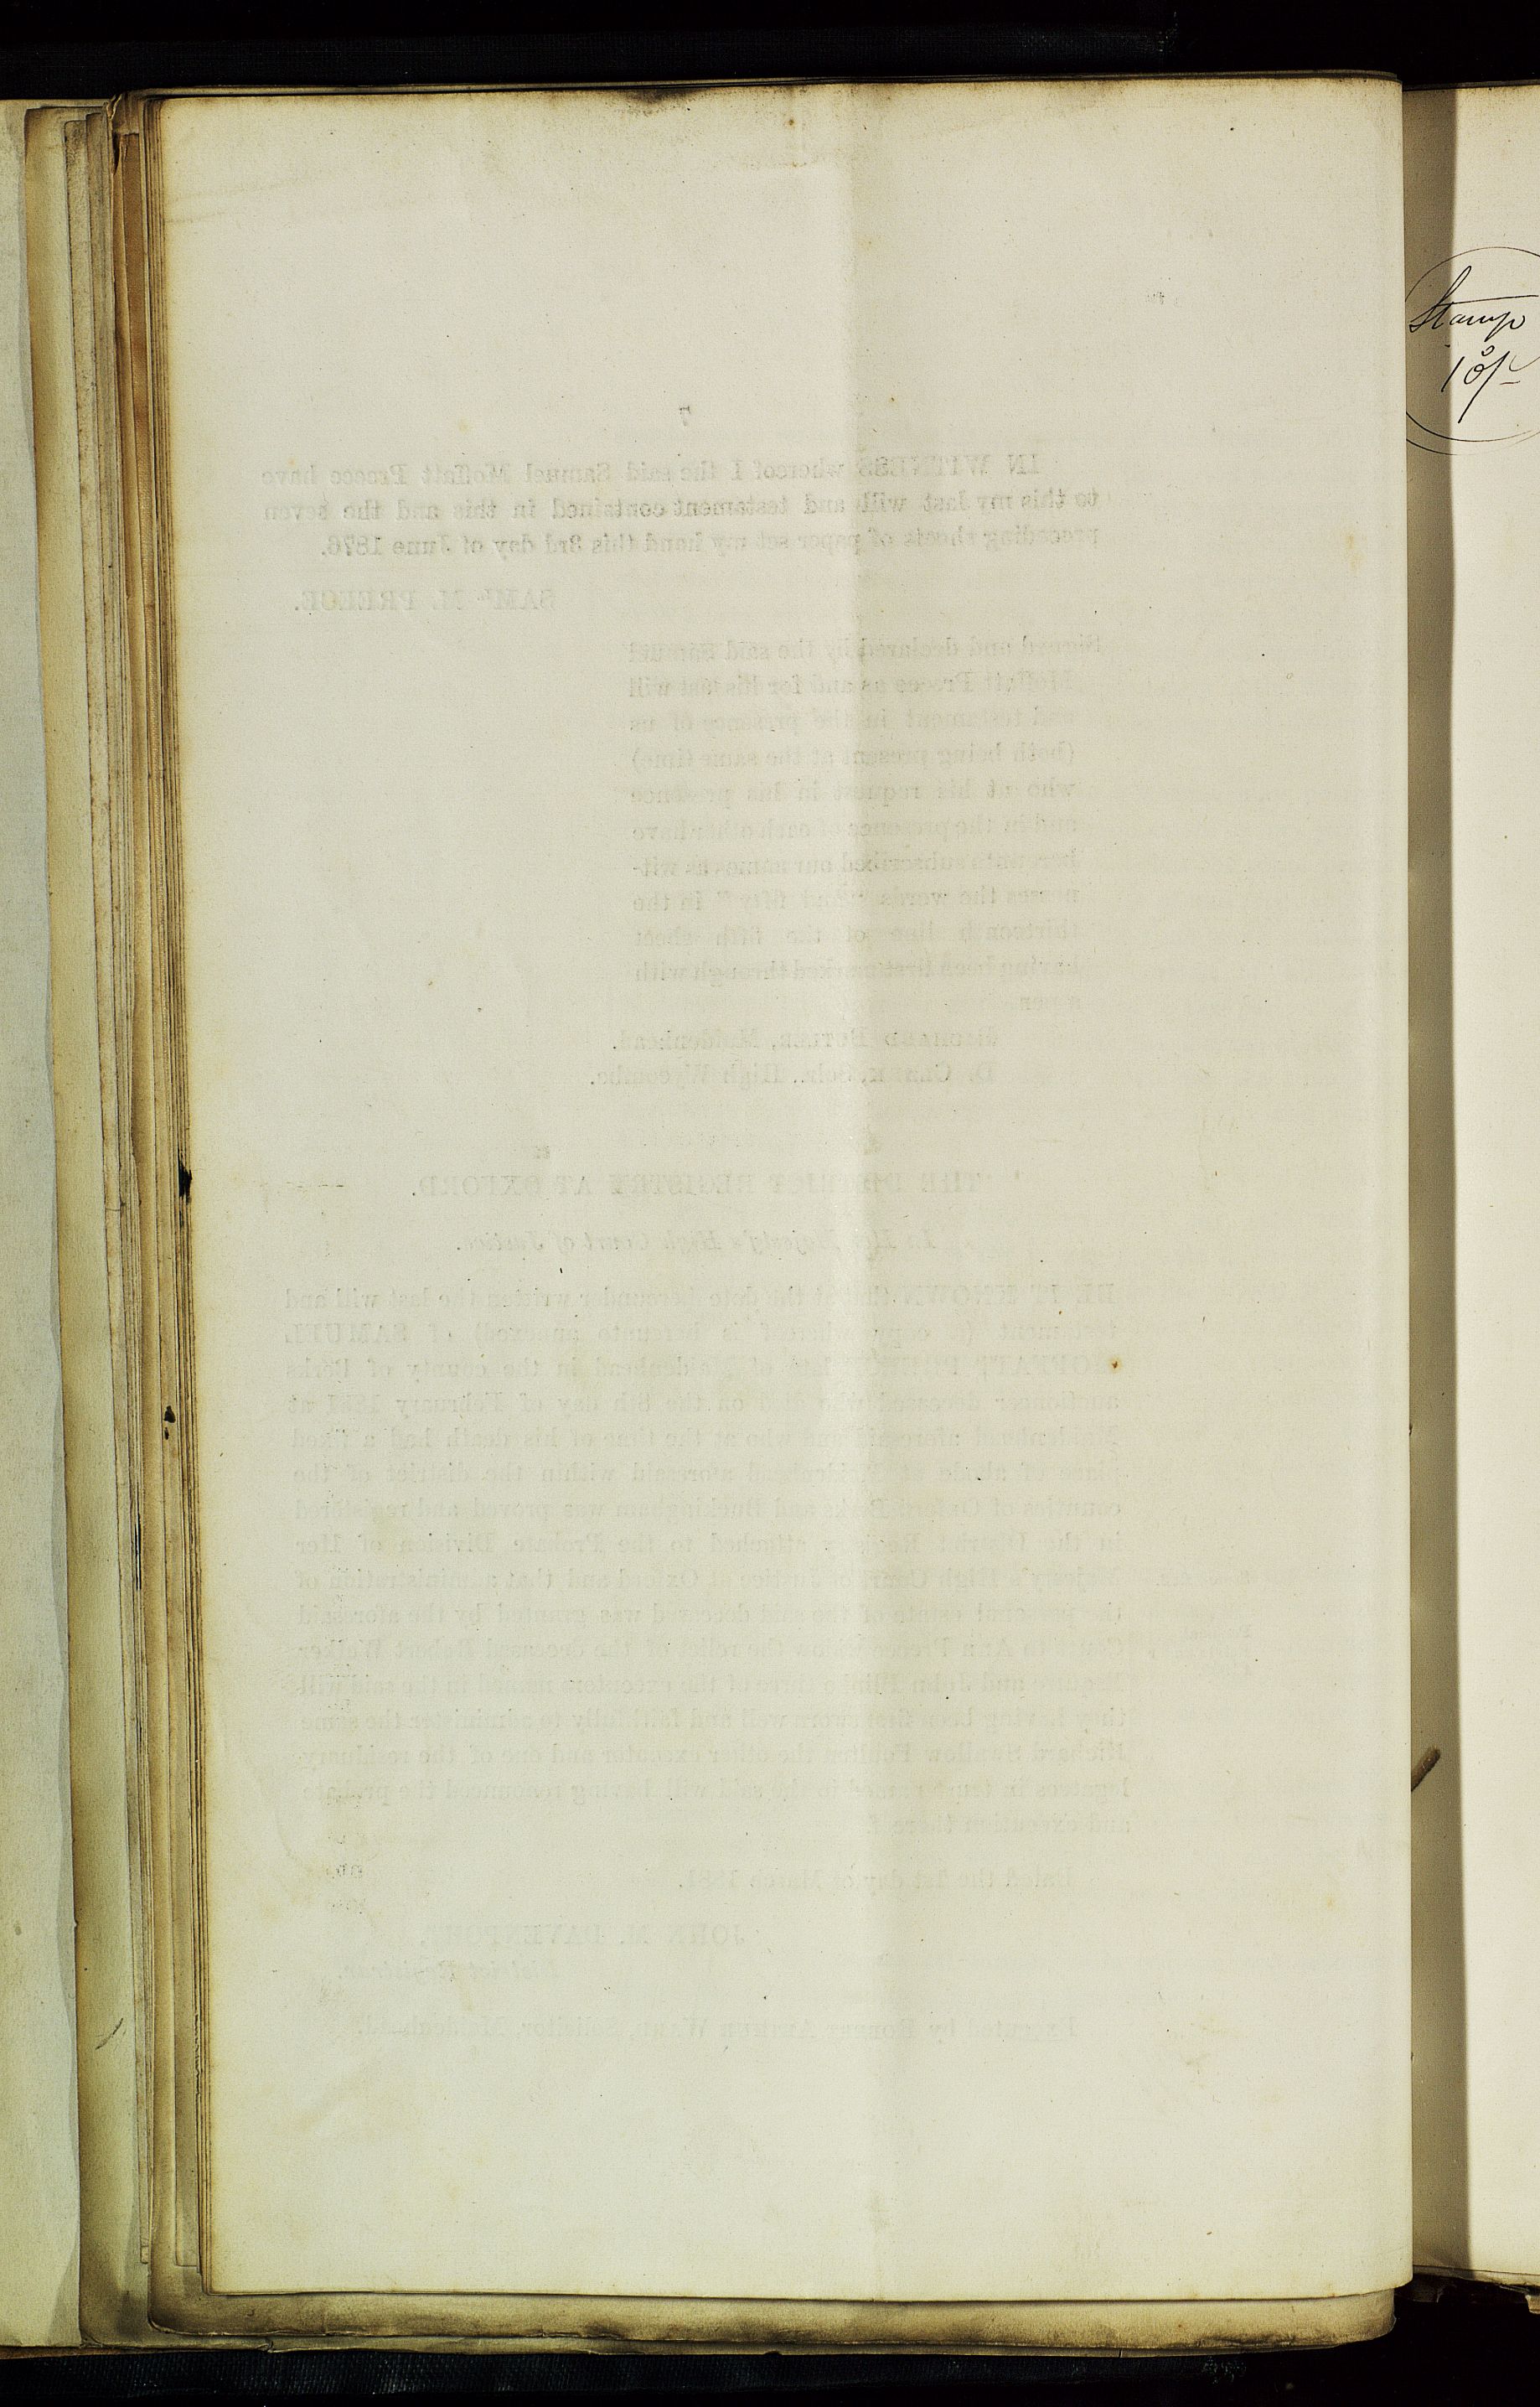 7
IN WITNESS whereof I the said Samuel Moffatt Preece have
to this my last will and testament contained in this and the seven
preceding sheets of paper set my hand this 3rd day of June 1876.
SAML M. PREECE.
Signed and declared by the said Samuel
Moffatt Preece as and for his last will
and testament in the presence of us
(both being present at the same time)
who at his request in his presence
and in the presence of each other have
hereunto subscribed our names as wit-
nesses the words "and fifty" in the
thirteenth line of the fifth sheet
having been first marked through with
a pen.
RICHARD BUTLER, Maidenhead.
D. CLARKE, Solr., High Wycombe.
THE DISTRICT REGISTRY AT OXFORD.
In Her Majesty's High Court of Justice.
BE IT KNOWN that at the date hereunder written the last will and
testament (a copy whereof is hereunto annexed) of SAMUEL
MOFFATT PREECE late of Maidenhead in the county of Berks
auctioneer deceased who died on the 8th day of February 1881 at
Maidenhead aforesaid and who at the time of his death had a fixed
place of abode at Maidenhead aforesaid within the district of the
counties of Oxford Berks and Buckingham was proved and registered
in the District Registry attached to the Probate Division of Her
Majesty's High Court of Justice at Oxford and that administration of
the personal estate of the said deceased was granted by the aforesaid
Court to Ann Preece widow the relict of the deceased Robert Walker
Esquire and John three of the executors named in the said will
they having been first sworn well and faithfully to administer the same
Richard Swallow the other executor and one of the residuary
legatees in trust named in the said will having renounced the probate
and execution thereof.
Dated the 1st day of March 1881.
JOHN M. DAVENPORT,
District Registrar.
Extracted by ROBERT WARD, Solicitor, Maidenhead.
Stamp
10/-